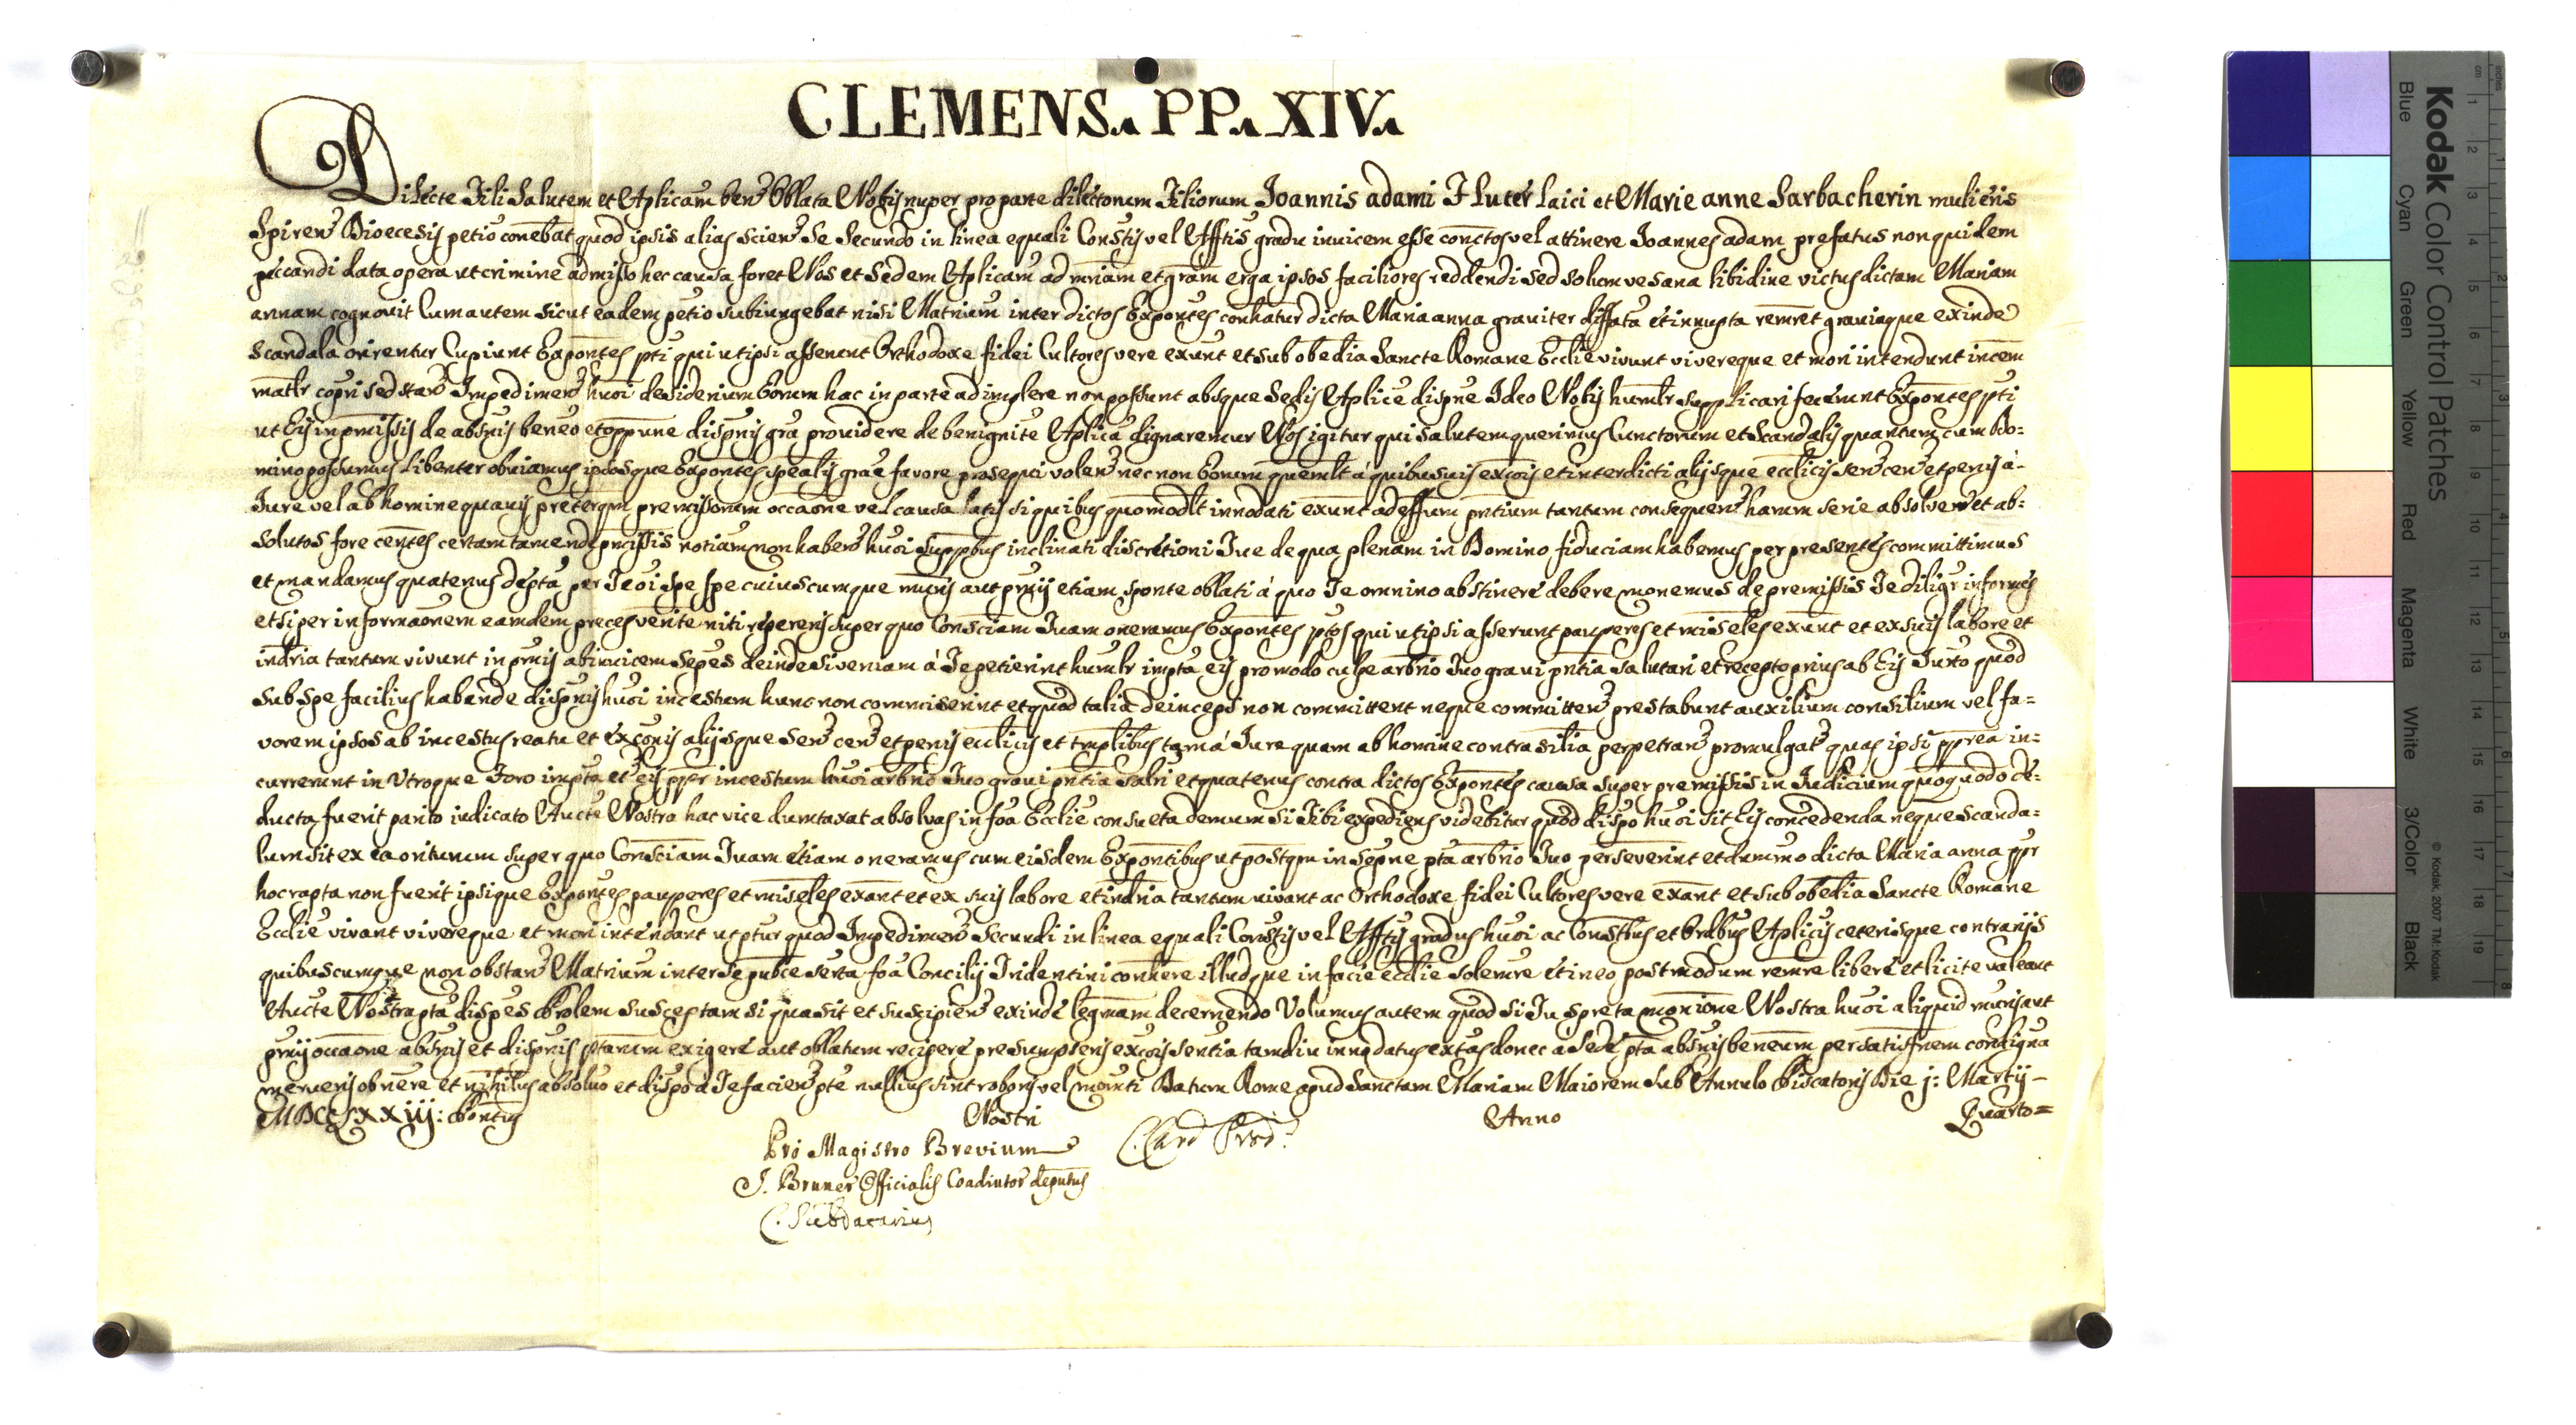 CLEMENS. PP. XIV.
Dilecte Fili Salutem et Aplicam ben Oblata Nobis nuper pro parte dilectorum Filiorum Joannis adami Fluter laici et Marie anne Sarbacherin mulieris
Spiren Dioecesis petio conebat quod ipsis alias scien se secundo in linea equali Constis vel Afftis gradu invicem esse conctos vel attinere Joannes adam prefatus non quidem
peccandi data opera ut crimine admisso hec causa foret Nos et Sedem Aplicam ad mriam et gram erga ipsos faciliores reddendi sed solum vesana libidine victus dictam Mariam
annam cognovit Cum autem sicut eadem petio subiungebat nisi Matrium inter dictos Exponentes conhatur dicta Maria anna graviter diffata et innupta remret graviaque exinde
scandala orirentur Cupiunt Exponentes pti qui ut ipsi asserunt Orthodoxe fidei Cultores vere exunt et sub obedia Sancte Romane Ecclie vivunt vivereque et mori intendunt incem
matlr copri sed stan Impedimen huoi desiderium Eorum hac in parte adimplere non possunt absque Sedis Aplice dispne Ideo Nobis humlr supplicari fecerunt Exponentes pti
ut Eis in pmissis de absnis beneo et oppune dispnis gra providere de benignite Aplica dignaremur Nos igitur qui salutem querimus Cunctorum et Scandalis quantum cum Do=
mino possumus libenter obviamus ipsosque Exponentes spealis grae favore prosequi volen nec non Eorum quemlt a quibusvis excois et interdicti alijsque ecclicis sen cen et penis a
Jure vel ab homine quavis preterqm premissorum occaone vel causa latis si quibus quomodlt innodati exunt ad effum pntium tantum consequen harum serie absolven et ab=
solutos fore centes certam tamen de pmissis notiam non haben huoi suppbus inclinati discretioni Tue de qua plenam in Domino fiduciam habemus per presentes committimus
et mandamus quatenus depta per Te oi spe cuiuscumque muneris aut pmij etiam sponte oblati a quo Te omnino abstinere debere monemus de premissis Te diligr informes
et si per informaonem eamdem preces veritate niti repereris super quo Consciam Tuam oneramus Exponentes ptos qui ut ipsi asserunt pauperes et miseles exunt et ex suis labore et
indria tantum vivunt in pmis ab invicem sepes deinde si veniam a Te petierint humlr impta eis pro modo culpe arbrio Tuo gravi pntia salutari et recepto prius ab Eis Jurto quod
sub spe facilius habende dispnis huoi incestum hunc non commiserint et quod talia deinceps non committent neque committen prestabunt auxilium consilium vel fa=
vorem ipsos ab incestus reatu et excois alijsque sen cen et penis ecclicis et tmplibus tam a Jure quam ab homine contra silia perpetran promulgat quas ipsi pprea in=
currerunt in Utroque Foro impta et eis ppr incestum huoi arbrio Tuo gravi pntia salri et quatenus contra dictos Exponentes causa super premissis in Judicium quoquodo de=
ducta fuerit parito iudicato Aucte Nostra hac vice dumtaxat absolvas in foa Ecclie consueta demum si Tibi expediens videbitur quod dispo huoi sit Eis concedenda neque Scanda=
lum sit ex ea oriturum super quo Consciam Tuam etiam oneramus cum eisdem Expontibus ut postqm in sepne pta arbrio Tuo perseverint et dummo dicta Maria anna ppr
hoc rapta non fuerit ipsique Exponentes pauperes et miseles exant et ex suis labore et indria tantum vivant ac Orthodoxe fidei Cultores vere exant et sub obedia Sancte Romane
Ecclie vivant vivereque et mori intendant ut ptur quod Impedimen Secundi in linea equali Constis vel Afftis gradus huoi ac Constbus et Ordbus Aplicis ceterisque contrarijs
quibuscumque non obstan Matrium inter se publice serta foa Concilij Tridentini conhere illudque in facie ecclie solemre et in eo postmodum remre libere et licite valeant
Aucte Nostra pta dispes Prolem susceptam si qua sit et suscipien exinde legmam decernendo Volumus autem quod si Tu spreta monione Nostra huoi aliquid muneris aut
pmij occaone absnis et dispnis ptarum exigere aut oblatum recipere presumpseris excois sentia tamdiu innodatus extas donec a Sede pta absnis beneum per satisfnem condigna
merueris obnere et nihilus absoluo et dispo a Te facien pte nullius sint roboris vel momti Datum Rome apud Sanctam Mariam Maiorem Sub Annulo Piscatoris Die j: Martij
MDCCLXXIIJ: Pontus Nostri Anno Quarto=
Pro Magistro Brevium C. Card Prod.
J. Bruner Officialis Coadiutor deputus
C. Subdatarius
Kodak Color Control Patches
Blue Cyan Green Yellow Red Magenta White 3/Color Black
© Kodak, 2007 TM: Kodak